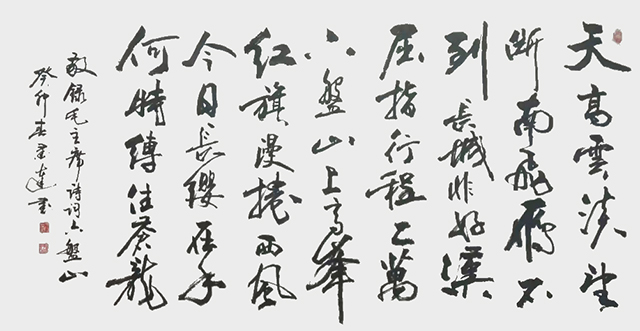 天高雲淡望
断南飛雁不
到長城非好漢
屈指行程二萬
六盤山上高峯
红旗漫捲西風
今日長纓在手
何時縛住蒼龍
敬録毛主席詩詞六盤山
癸卯春書